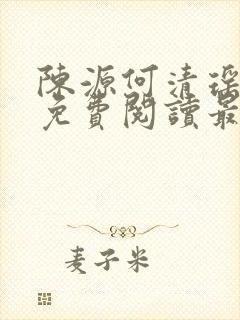 陳源何清瑤
免費閱讀最
麦子米